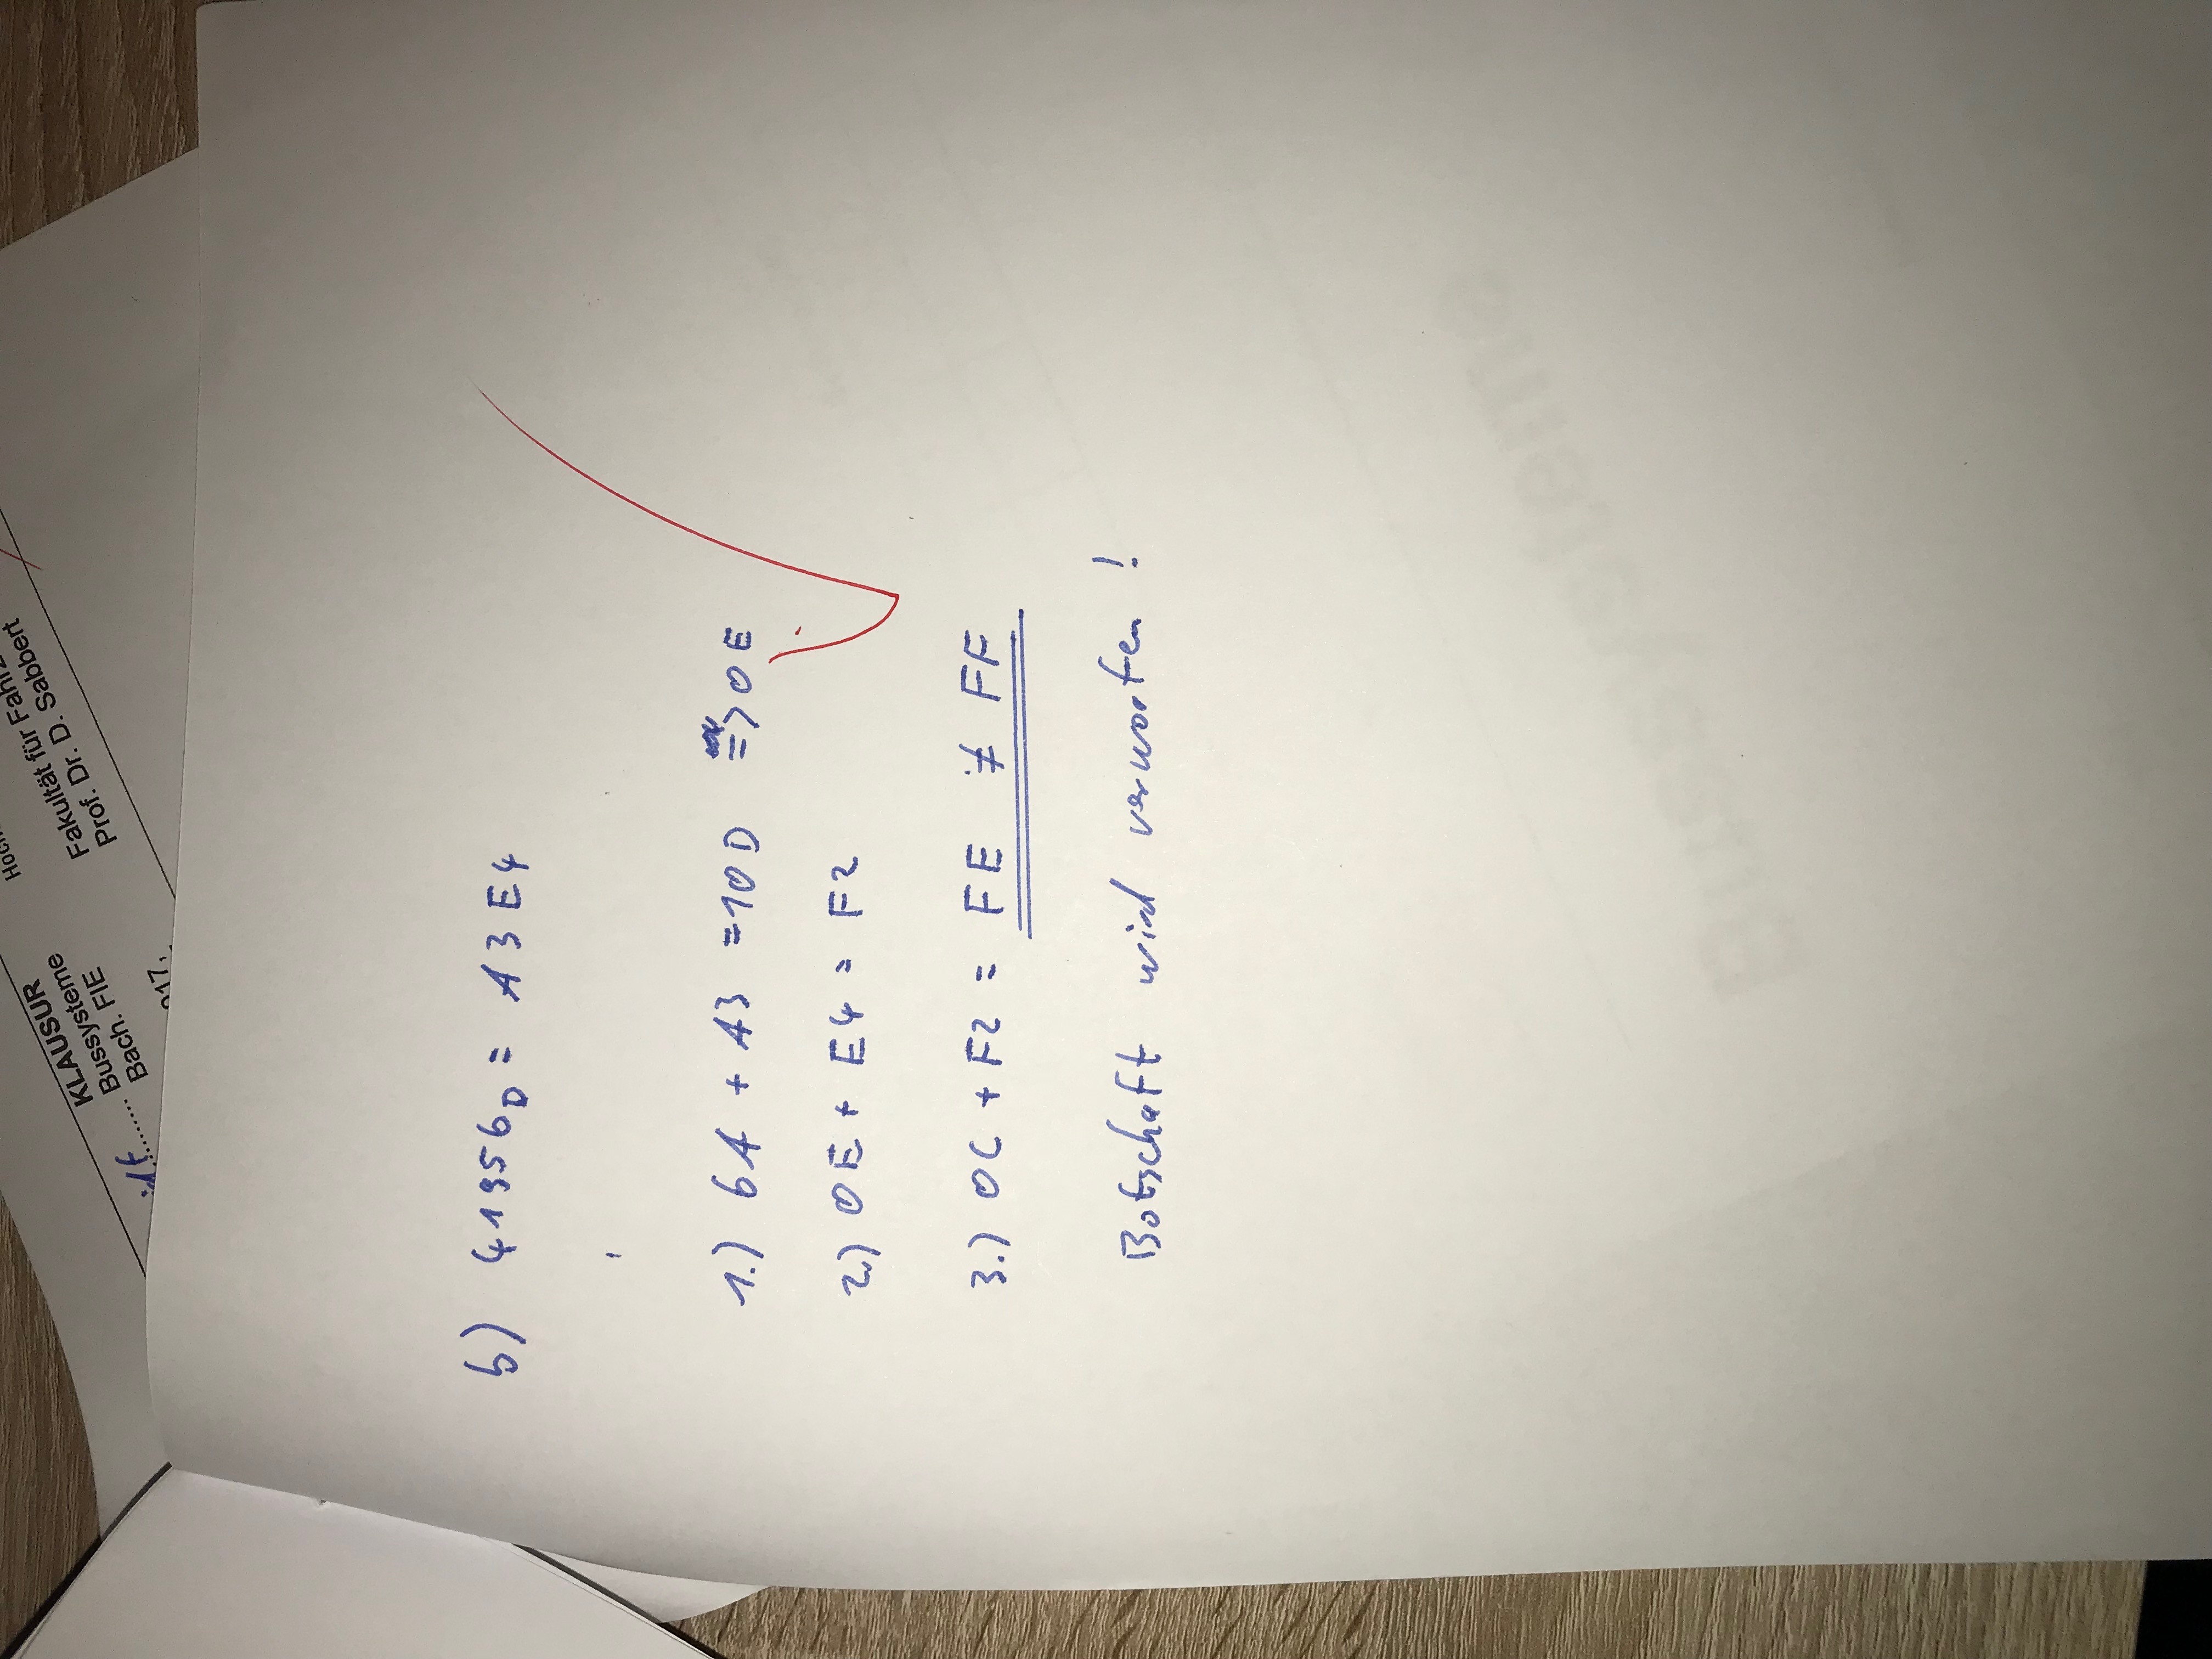 KLAUSUR
Bussysteme
Bach. FIE
Fakultät für
Prof. Dr. D. Sabbert
b) 41956D = A3E4
1.) 6A + A3 =10D => 0E
2.) 0E + E4 = F2
3.) 0C + F2 = FE ≠ FF
Botschaft wird verworfen !